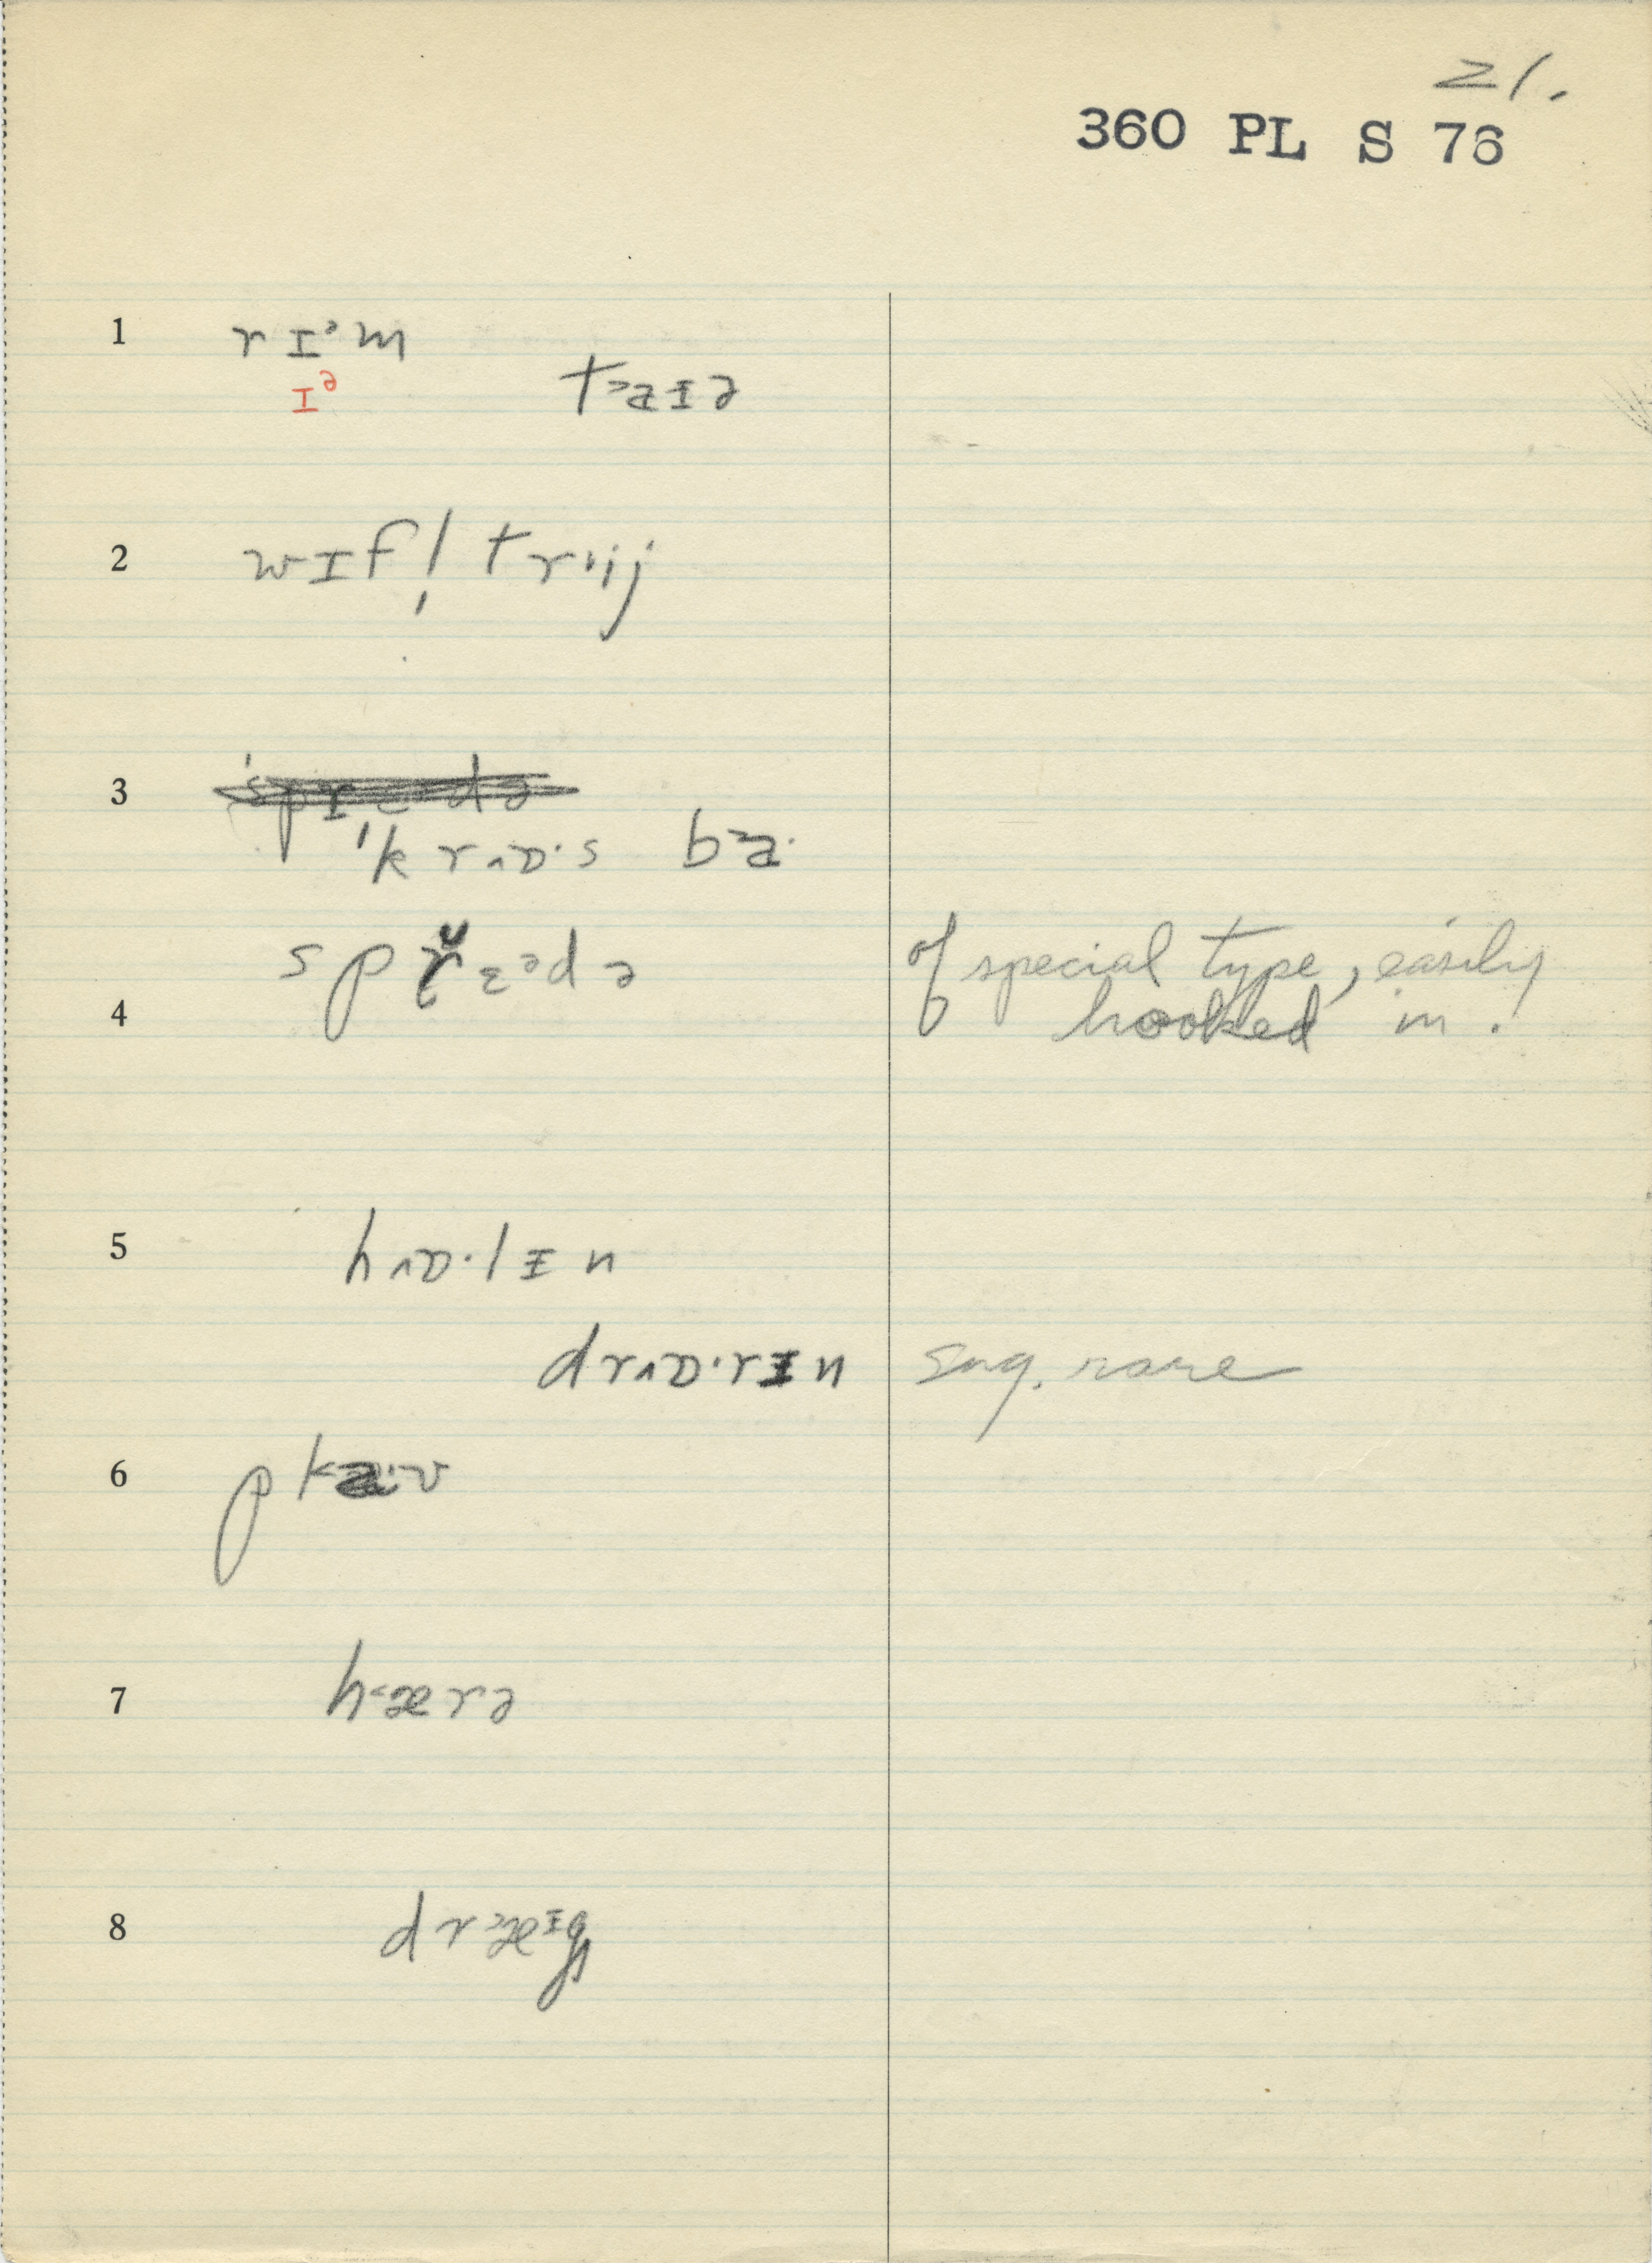 21.
360 PL S 76
1 rɪᵊm
ɪᵊ
t˃aɪə
2 wɪf ˌl trˈij
3
ˈkr^ɒ·s ba·
spr̆ɛᵊdə of special type, easily
4 hooked in.
5 h^ɒ·lɪn
dr^ɒ·rɪn sug. rare
6
7 h˂ærə
8 dr˃æᶦg